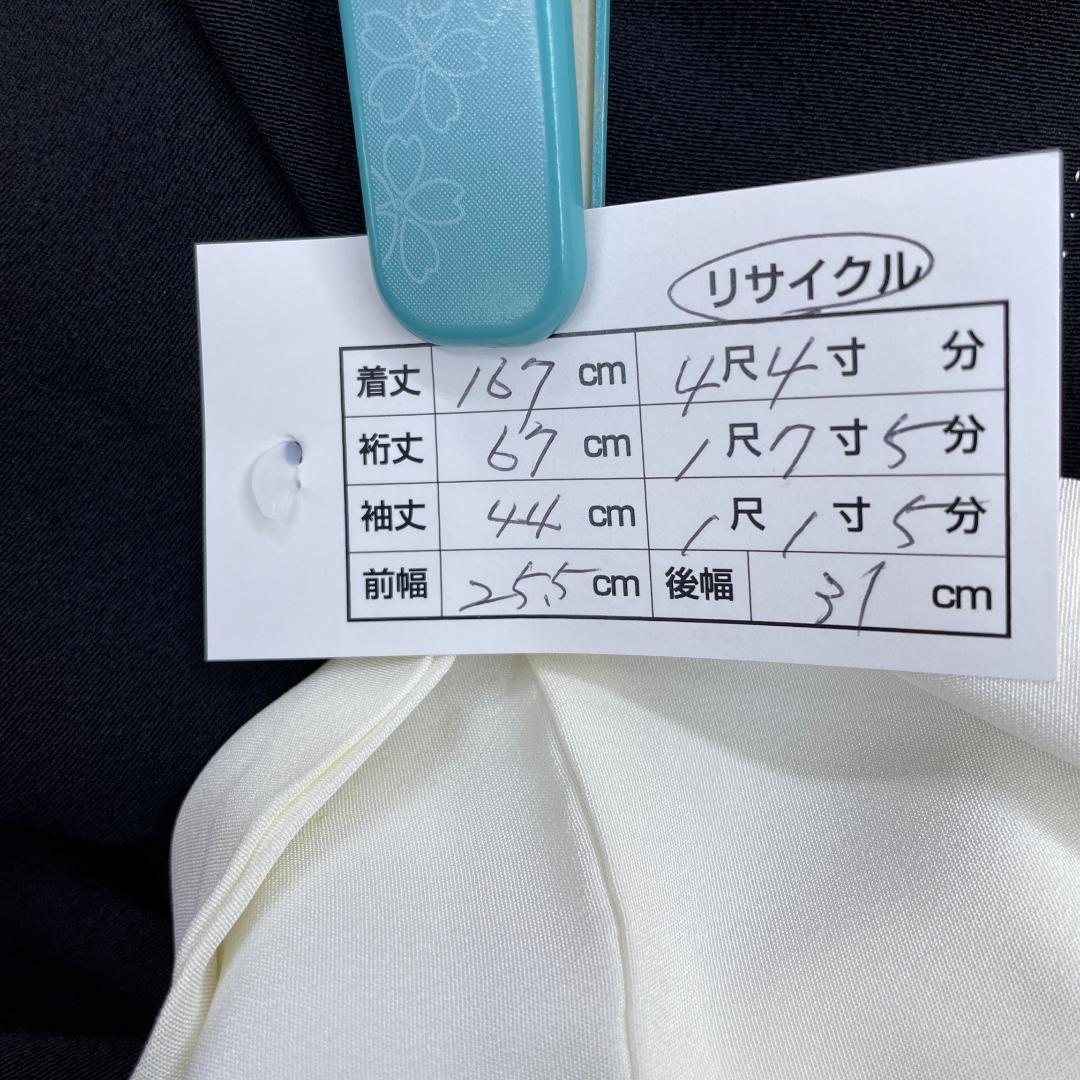 リサイクル
着丈 167 cm 4尺4寸 分
裄丈 67 cm 1尺7寸5分
袖丈 44 cm 1尺1寸5分
前幅 25.5cm 後幅 31 cm